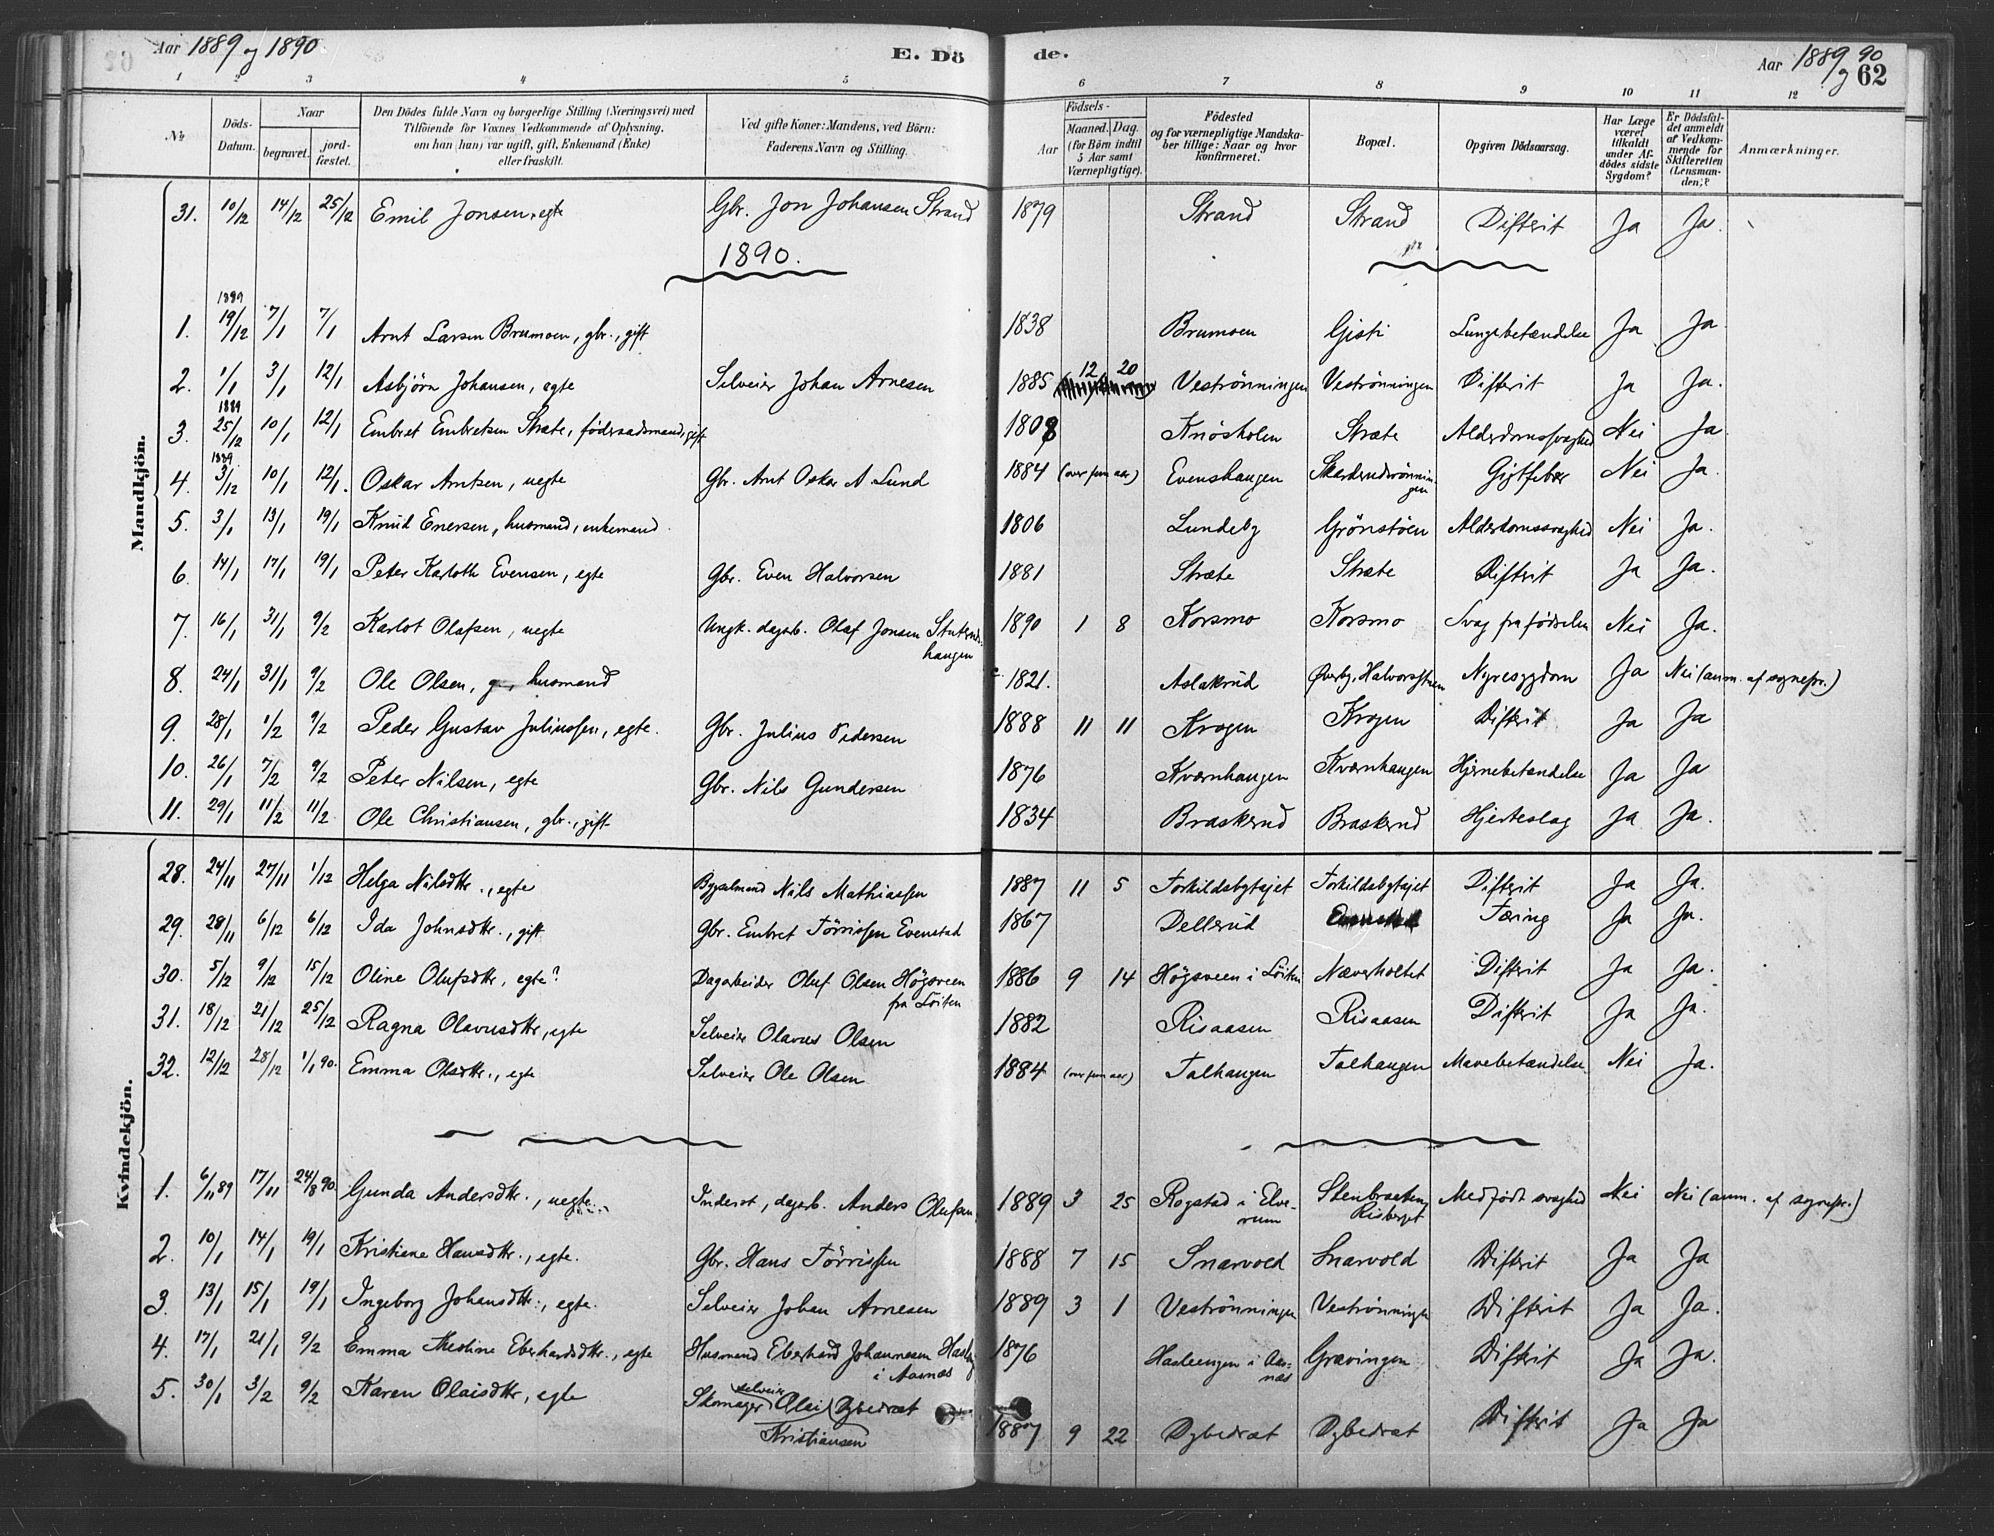 Aar 1889 og 1890 E. Dö de. Aar 1889 og 90 62
1 2 3 4 5 6 7 8 9 10 11 12
No
Döds-Datum.
Naar
begravet.
jordfæstet.
Den Dödes fulde Navn og borgerlige Stilling (Næringsvei) med
Tilföiende for Voxnes Vedkommende af Oplysning,
om han (hun) var ugift, gift, Enkemand (Enke)
eller fraskilt.
Ved gifte Koner: Mandens, ved Börn:
Faderens Navn og Stilling.
Födsels-
Aar
Maaned.
Dag.
(for Börn indtil
5 Aar samt
Værnepligtige).
Födested
og for værnepligtige Mandska-
ber tillige: Naar og hvor
konfirmeret.
Bopæl.
Opgiven Dödsaarsag.
Har Læge
været
tilkaldt
under Af-
dödes sidste
Sygdom?
Er Dödsfal-
det anmeldt
af Vedkom-
mende for
Skifteretten
(Lensman-
den)?
Anmærkninger.
Mandkjön.
31. 10/12 14/12 25/12 Emil Jonsen, egte Gbr. Jon Johansen Strand 1879 Strand Strand Difterit Ja Ja.
1890.
1. 1889 19/12 7/1 7/1 Arnt Larsen Brumoen, gbr., gift 1838 Brumoen Gjsti Lungebetændelse Ja Ja
2. 1/1 3/1 12/1 Asbjörn Johansen, egte Selveier Johan Arnesen 1885 12 20 Veströnningen Veströnningen Difterit Ja Ja.
3. 1889 25/12 10/1 12/1 Embret Embretsen Stræte, föderaadsmand, gift 1808 Knösholen Stræte Alderdomssvaghed Nei Ja
4. 1889 3/12 10/1 12/1. Oskar Arntsen, uegte Gbr. Arnt Oskar A. Lund 1884 (over fem aar) Evenshaugen Skarderudrönnin-
gen Gigtfeber Nei Ja.
5. 3/1 13/1 19/1 Knud Enersen, husmand, enkemand. 1806 Lundeby Grönstöen Alderdomssvaghed Nei Ja.
6. 14/1 17/1 19/1 Peter Karloth Evensen, egte Gbr. Even Halvorsen 1881 Stræte Stræte Difterit Ja Ja.
7. 16/1 31/1 9/2 Karlot Olafsen, uegte Ungk. dagarb. Olaf Jonsen Stuterud-
haugen 1890 1 8 Korsmo Korsmo Svag fra födselen Nei Ja.
8. 24/1 31/1 9/2 Ole Olsen, husmand c. 1821. Aslakrud Øverby, Halvorsstuen Nyresygdom Ja Nei (anm. af sognepr.)
9. 28/1 1/2 9/2 Peder Gustav Juliussen, egte. Gbr. Julius Pedersen 1888 11 11 Krogen Krogen Difterit Ja Ja
10. 26/1 7/2 9/2 Peter Nilsen, egte Gbr. Nils Gundersen 1876 Kværnhaugen Kværnhaugen Hjernebetændelse Ja Ja
11. 29/1 11/2 11/2. Ole Christiansen, gbr., gift 1834 Braskerud Braskerud Hjerteslag Ja Ja.
Kvindekjön.
28. 24/11 27/11 1/12 Helga Nilsdtr., egte Bygselmand Nils Mathiassen 1887 11 5 Torkildsbytajet Torkildsbytajet Difterit Ja Ja.
29. 28/11 6/12 6/12 Ida Johnsdtr., gift Gbr. Embret Törrissen Evenstad 1867 Dellerud Tæring Ja Ja.
30. 5/12 9/12 15/12 Oline Olufsdtr, egte? Dagarbeider Oluf Olsen Högsveen
fra Löiten 1886 9 14 Högsveen i Löiten Næverholtet Difterit Ja Ja.
31. 18/12 21/12 25/12 Ragna Olavusdtr, egte Selveier Olavus Olsen 1882 Risaasen Risaasen Difterit Ja Ja.
32. 12/12 28/12 1/1 90. Emma Olsdtr., egte Selveier Ole Olsen 1884 (over fem aar) Talhaugen Talhaugen Mavebetændelse Nei Ja.
1. 6/11 89 17/11 24/8 90. Gunda Andersdtr., uegte Inderst, dagarb. Anders Olufsen 1889 3 25 Rogstad i Elve-
rum Stenbraaten
Risberget Medfödt svaghed Nei Nei (anm. af sognepr.)
2. 10/1 14/1 19/1 Kristiane Hansdtr., egte. Gbr. Hans Törrissen 1888 7 15 Snarvold Snarvold Difterit Ja Ja
3. 13/1 15/1 19/1 Ingeborg Johansdtr., egte. Selveier Johan Arnesen 1889 3 1 Veströnningen Veströnningen Difterit Ja Ja.
4. 17/1 21/1 9/2 Emma Theoline Eberhardsdtr., egte Husmand Eberhard Johannesen
i Aasnæs 1876 Hasleengen i Aas-
næs Grævingen Difterit Ja Ja.
5. 30/1 3/2 9/2 Karen Olaisdtr, egte Skomager selveier Olai Dybedræt
Kristiansen 1887 9 22 Dybedræt Dybedræt Difterit Ja Ja